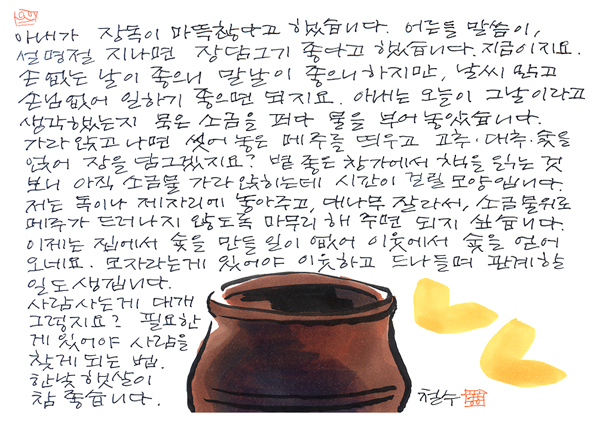 아내가 장독이 마뜩찮다고 했습니다. 어른들 말씀이,
설 명절 지나면 장담그기 좋다고 했습니다. 지금이지요.
손없는 날이 좋으니 말날이 좋으니 하지만, 날씨 맑고
손님없어 일하기 좋으면 되지요. 아내는 오늘이 그날이라고
생각했는지 묵은 소금을 퍼다 물을 부어 놓았습니다.
가라앉고 나면 씻어 놓은 메주를 띄우고 고추·대추·숯을
얹어 장을 담그겠지요? 볕 좋은 창가에서 책을 읽는 것
보니 아직 소금물 가라앉히는데 시간이 걸릴 모양입니다.
저는 독이나 제자리에 놓아주고, 대나무 잘라서, 소금물위로
메주가 드러나지 않도록 마무리 해 주면 되지 싶습니다.
이제는 집에서 숯을 만들 일이 없어 이웃에서 숯을 얻어
오네요. 모자라는게 있어야 이웃하고 드나들며 관계할
일도 생깁니다.
사람사는게 대개
그렇지요? 필요한
게 있어야 사람을
찾게 되는 법.
한낮 햇살이
참 좋습니다.
철수